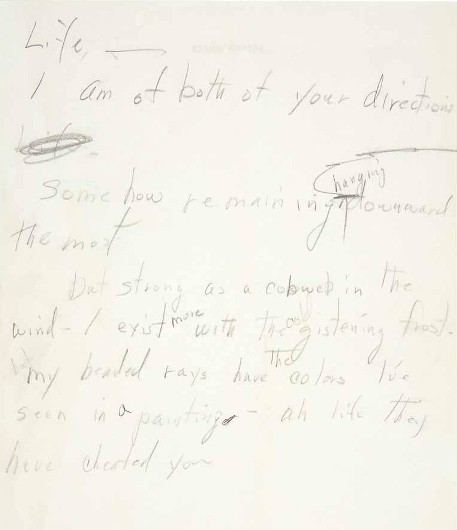 Life, —
I am of both of your directions
Somehow remaining hanging downward
the most
But strong as a cobweb in the
wind – I exist more with the cold glistening frost.
my beaded rays have the colors I've
seen in a paintings – ah life they
have cheated you